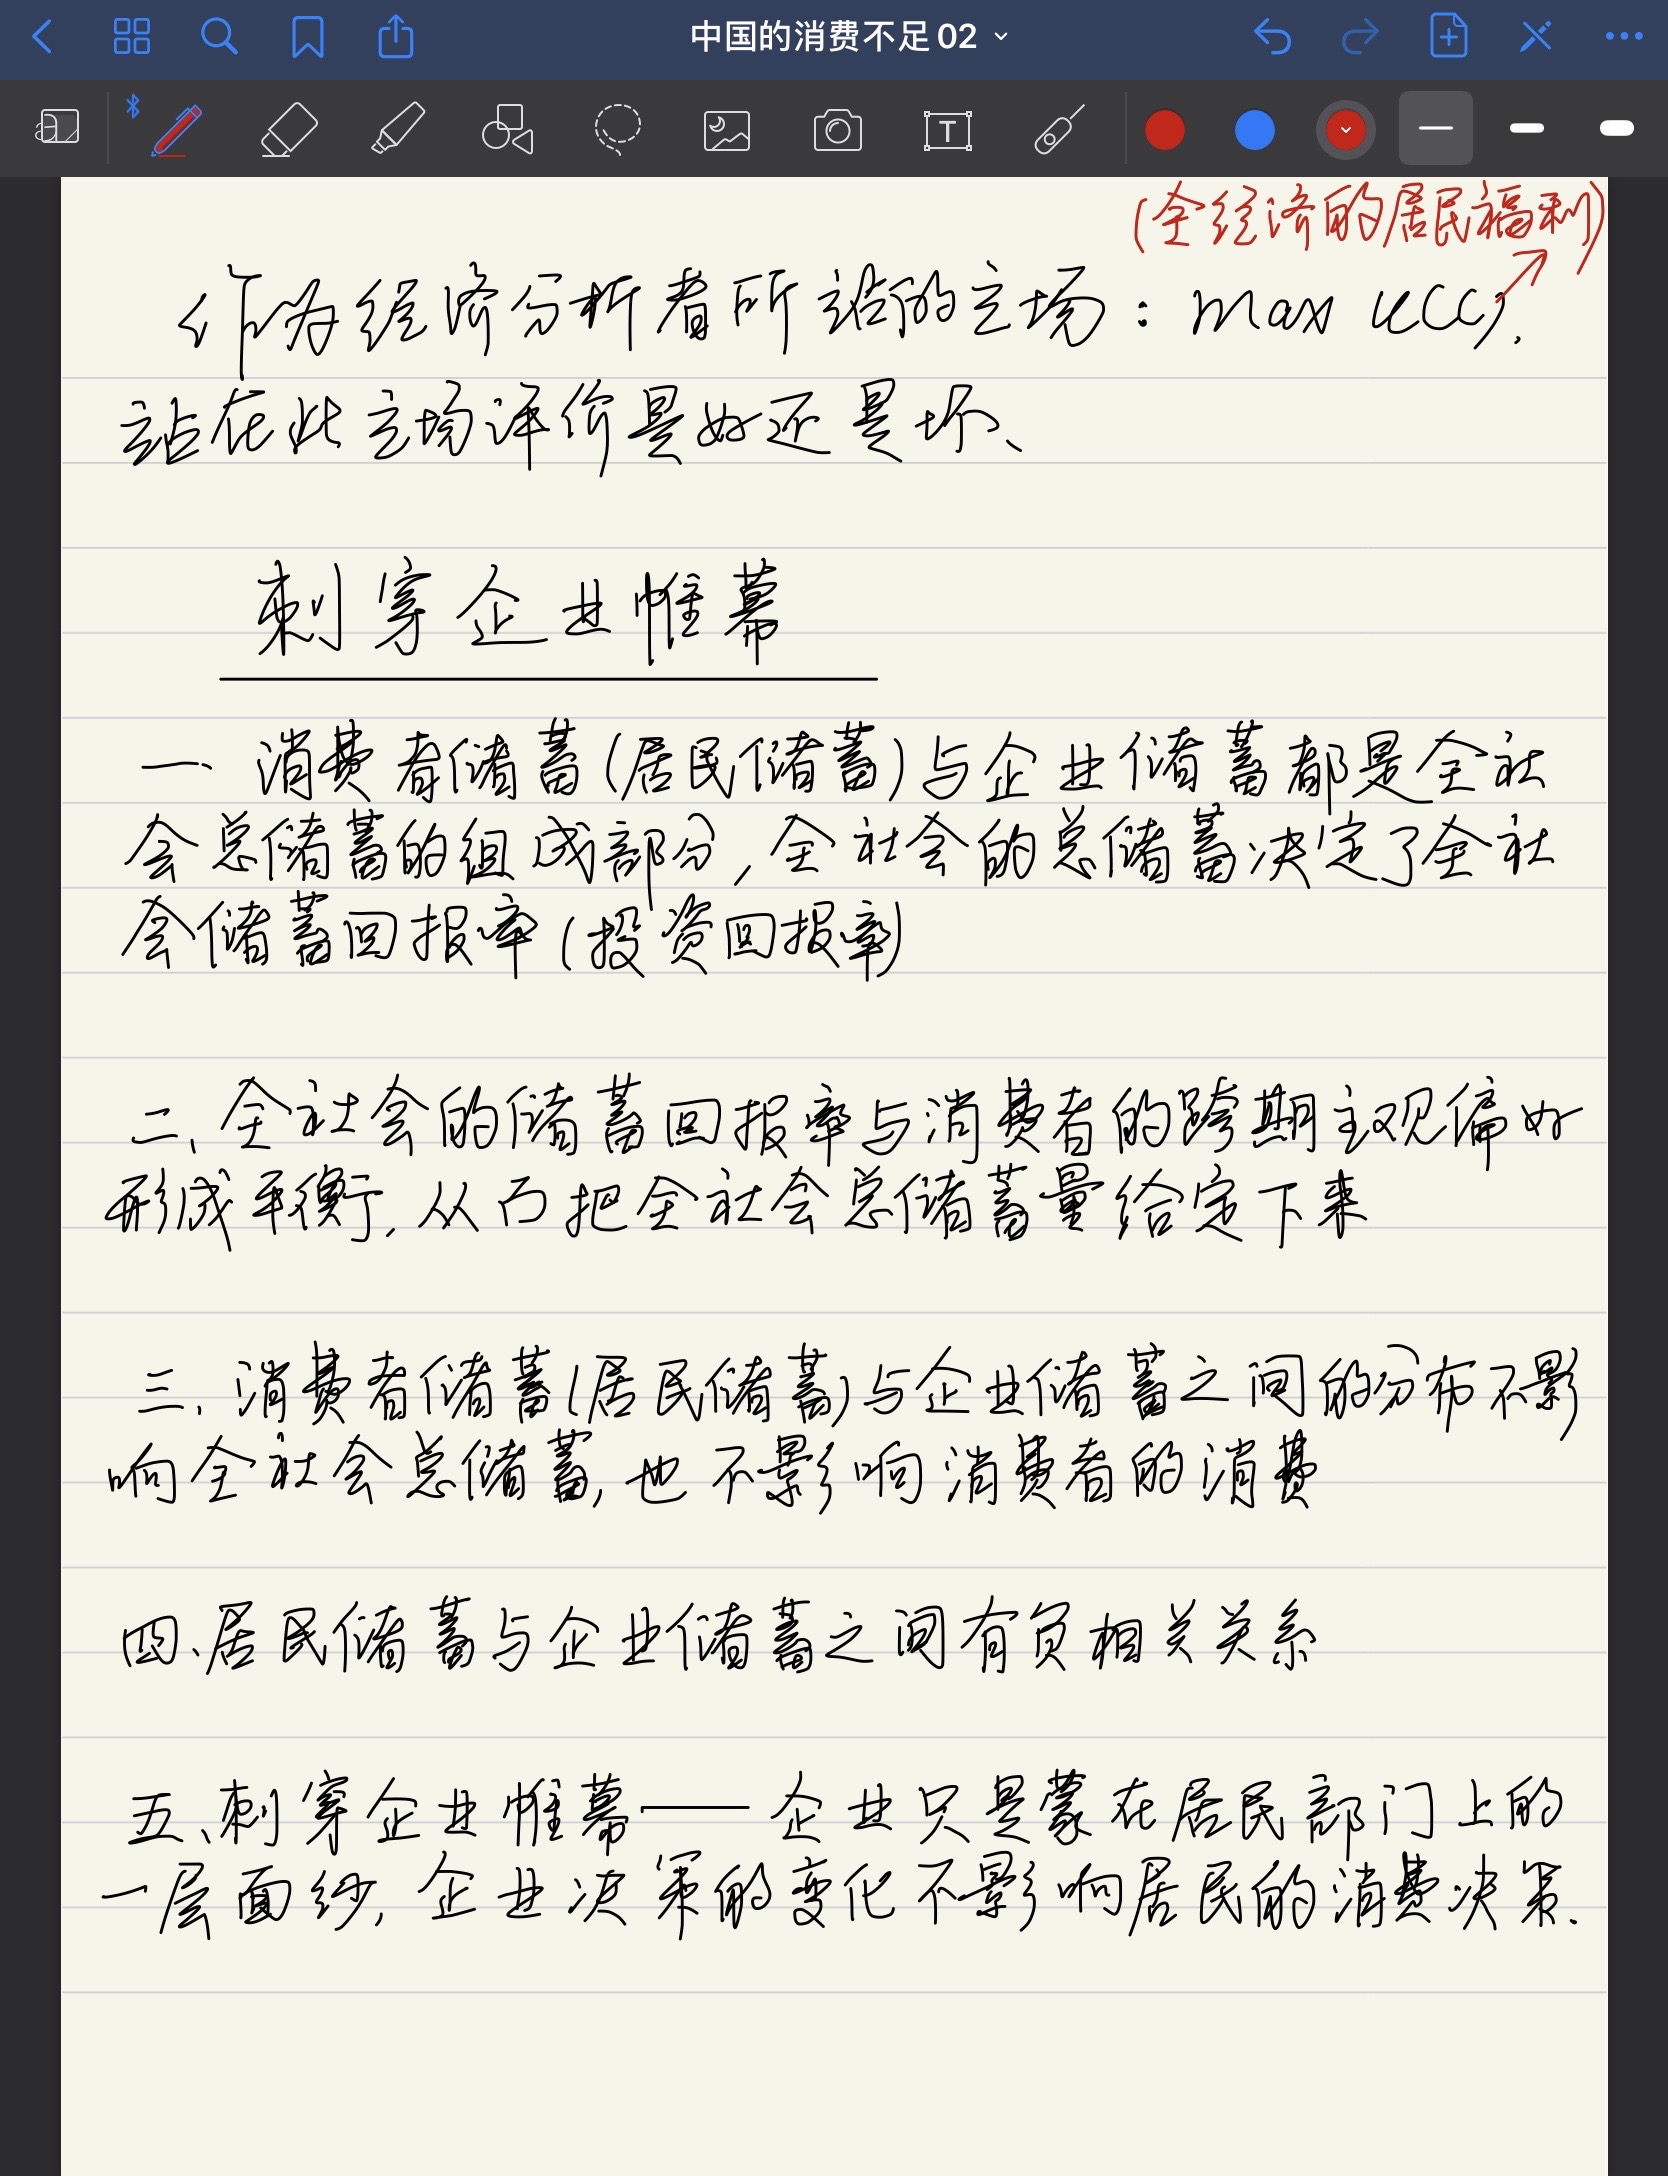 中国的消费不足02
T
(全经济的居民福利)
作为经济分析者所站的立场：max u(c).
站在此立场评价是好还是坏、
刺穿企业帷幕
一、消费者储蓄(居民储蓄)与企业储蓄都是全社
会总储蓄的组成部分，全社会的总储蓄决定了全社
会储蓄回报率(投资回报率)
二、全社会的储蓄回报率与消费者的跨期主观偏好
形成平衡，从而把全社会总储蓄量给定下来
三、消费者储蓄(居民储蓄)与企业储蓄之间的分布不影
响全社会总储蓄，也不影响消费者的消费
四、居民储蓄与企业储蓄之间有负相关关系
五、刺穿企业帷幕——企业只是蒙在居民部门上的
一层面纱，企业决策的变化不影响居民的消费决策.